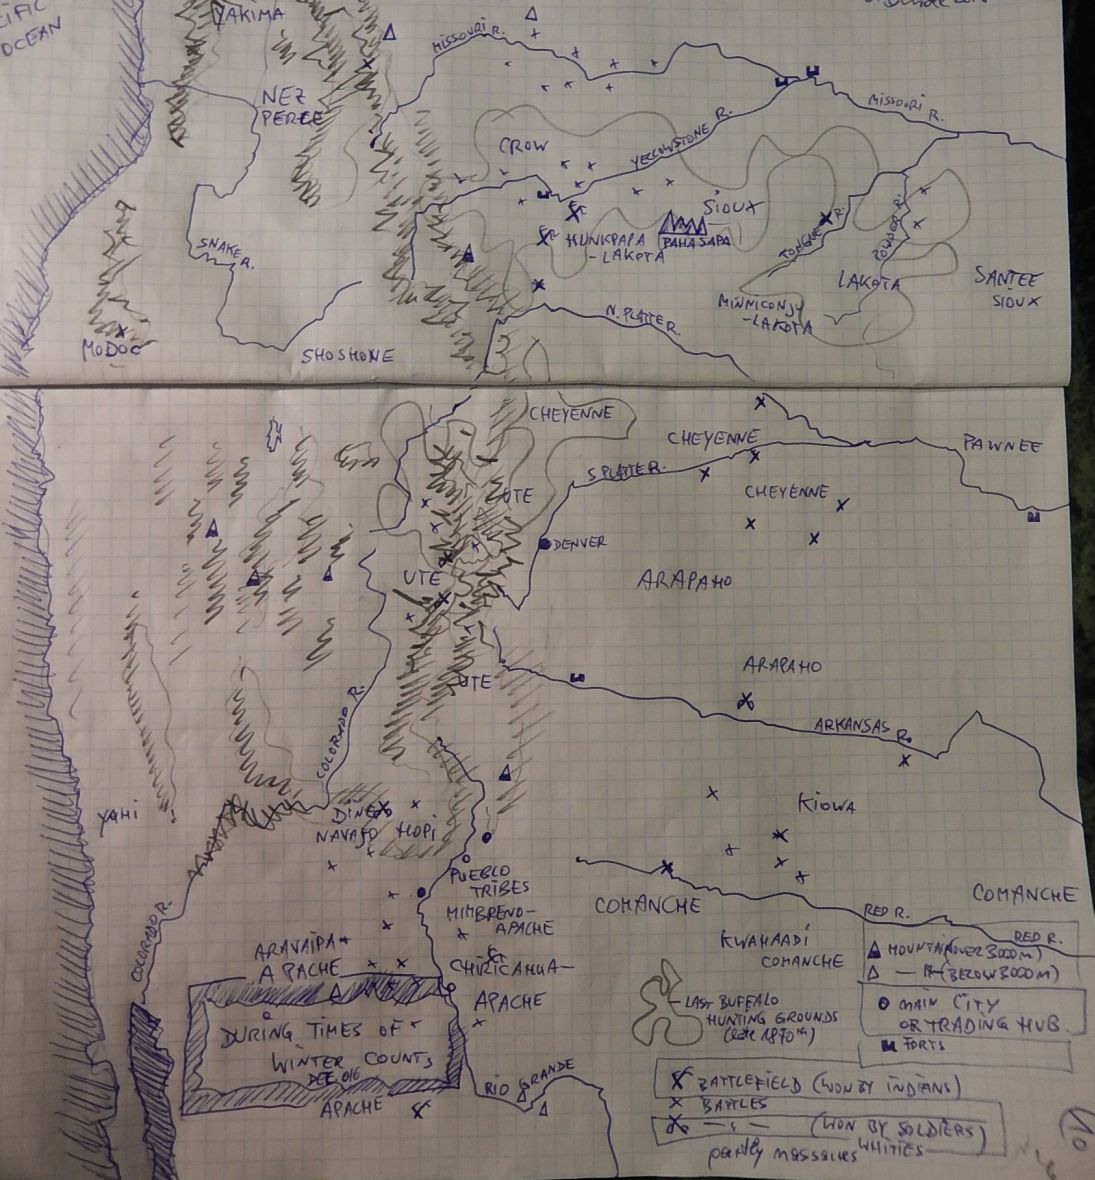 CIFIC
OCEAN
YAKIMA
MISSOURI R.
NEZ
PERCE
MISSOURI R.
CROW
YELLOWSTONE R.
SIOUX
HUNKPAPA
-LAKOTA
PAHA SAPA
TONGUE R.
POWDER R.
SNAKE R.
LAKOTA
SANTEE
SIOUX
MINNICONJU
-LAKOTA
N. PLATTE R.
MODOC
SHOSHONE
CHEYENNE
CHEYENNE
PAWNEE
S. PLATTE R.
UTE
CHEYENNE
DENVER
UTE
ARAPAHO
ARAPAHO
UTE
ARKANSAS R.
COLORADO R.
KIOWA
YAHI
DINE
NAVAJO HOPI
PUEBLO
TRIBES
COMANCHE
COMANCHE
MIMBRENO-
APACHE
RED R.
RED R.
COLORADO R.
ARAVAIPA
APACHE
KWAHAADI
COMANCHE
CHIRICAHUA-
APACHE
MOUNTAIN (OVER 3000 M)
(BELOW 3000 M)
MAIN CITY
OR TRADING HUB
FORTS
LAST BUFFALO
HUNTING GROUNDS
DURING TIMES OF
WINTER COUNTS
DEC 016
APACHE
RIO GRANDE
BATTLEFIELD (WON BY INDIANS)
BATTLES
(WON BY SOLDIERS)
WHITIES
partly massacres